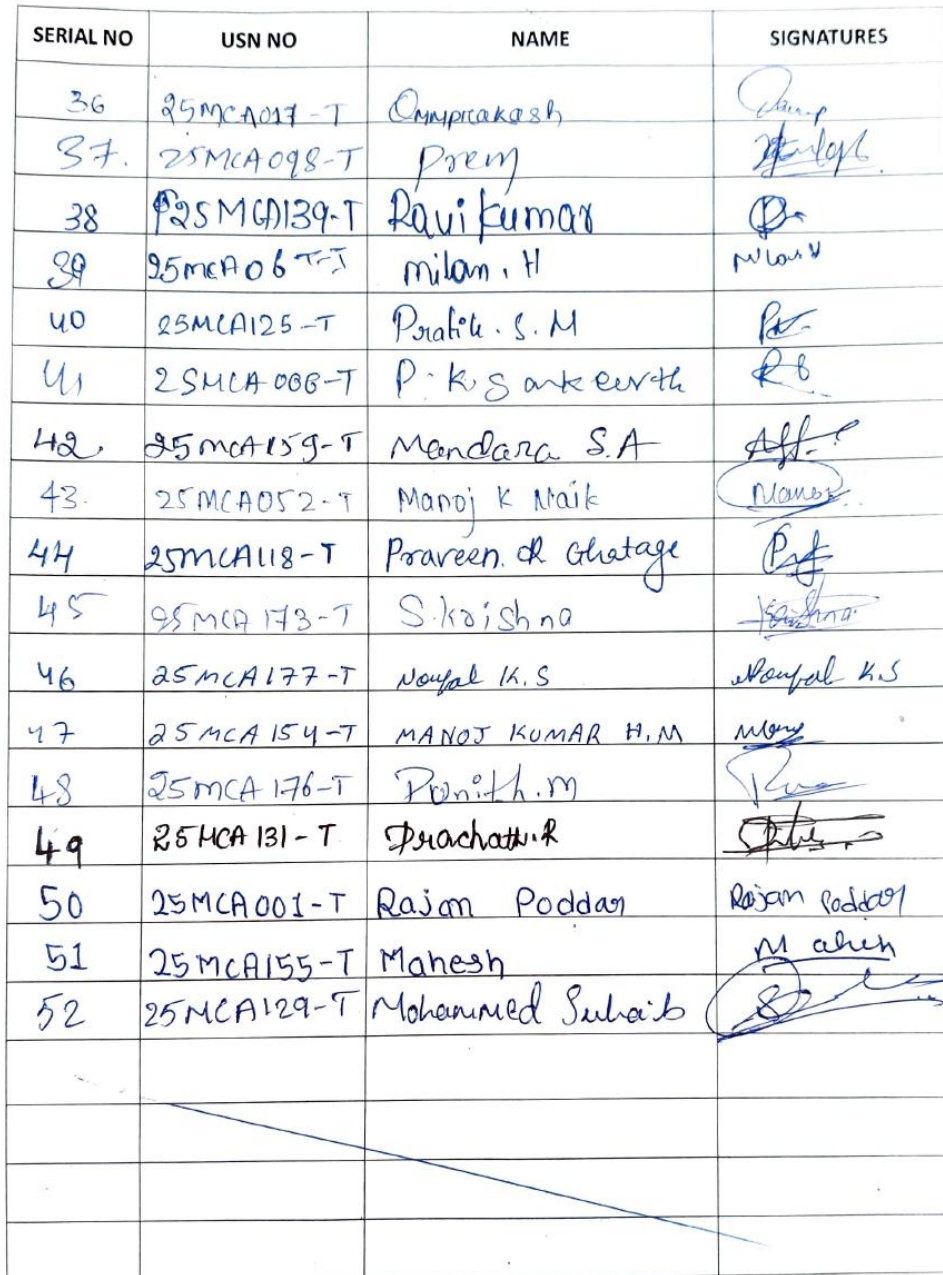 SERIAL NO USN NO NAME SIGNATURES
36 25MCA017-T Ommprakash
37. 25MCA098-T Prem
38 25MCA139-T Ravi kumar
39 25MCA06 milan. H
40 25MCA125-T Pratik. S. M
41 25MCA006-T P. K. Sankeerth
42. 25MCA159-T Mandara S.A
43. 25MCA052-T Manoj K Naik Manoj
44 25MCA118-T Praveen. R Ghatage
45 25MCA173-T S.krishna Krishna
46 25MCA177-T Noufal K.S Noufal K.S
47 25MCA154-T MANOJ KUMAR H.M Manoj
48 25MCA176-T Punith.m
49 25MCA131-T Prachath.R
50 25MCA001-T Rajan Poddar Rajan Poddar
51 25MCA155-T Mahesh Mahesh
52 25MCA129-T Mohammed Suhaib